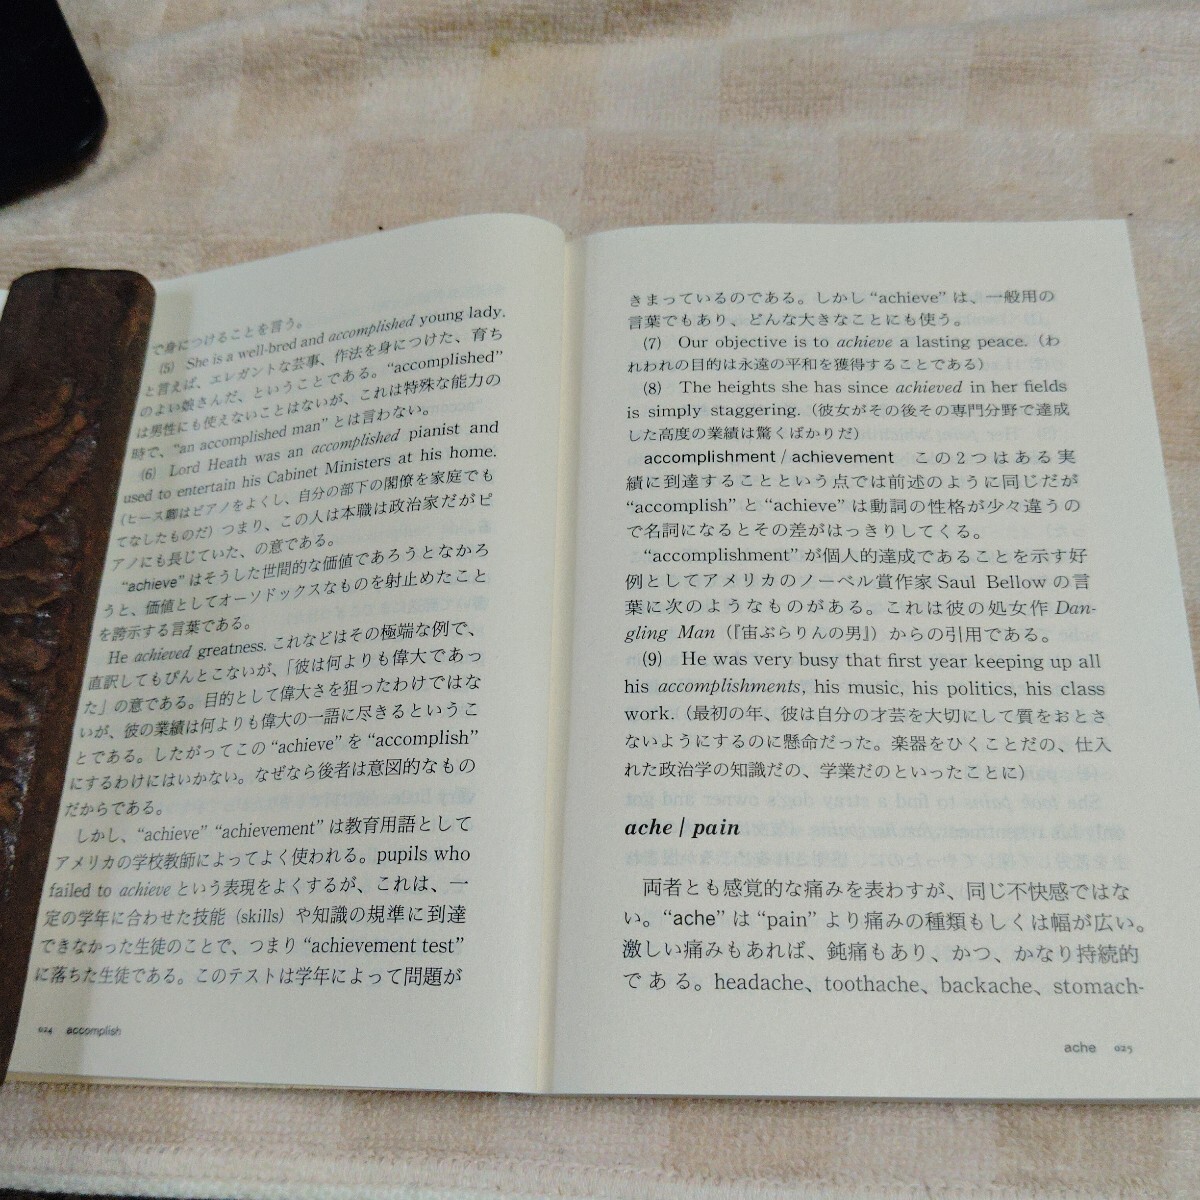 で身につけることを言う。
(5) She is a well-bred and accomplished young lady.
と言えば、エレガントな芸事、作法を身につけた、育ち
のよい娘さんだ、ということである。“accomplished”
は男性にも使えないことはないが、これは特殊な能力の
時で、“an accomplished man” とは言わない。
(6) Lord Heath was an accomplished pianist and
used to entertain his Cabinet Ministers at his home.
（ヒース卿はピアノをよくし、自分の部下の閣僚を家庭でも
てなしたものだ）つまり、この人は本職は政治家だがピ
アノにも長じていた、の意である。
“achieve” はそうした世間的な価値であろうとなかろ
うと、価値としてオーソドックスなものを射止めたこと
を誇示する言葉である。
He achieved greatness. これなどはその極端な例で、
直訳してもぴんとこないが、「彼は何よりも偉大であっ
た」の意である。目的として偉大さを狙ったわけではな
いが、彼の業績は何よりも偉大の一語に尽きるというこ
とである。したがってこの “achieve” を “accomplish”
にするわけにはいかない。なぜなら後者は意図的なもの
だからである。
しかし、“achieve” “achievement” は教育用語として
アメリカの学校教師によってよく使われる。pupils who
failed to achieve という表現をよくするが、これは、一
定の学年に合わせた技能 (skills) や知識の規準に到達
できなかった生徒のことで、つまり “achievement test”
に落ちた生徒である。このテストは学年によって問題が
024 accomplish
きまっているのである。しかし “achieve” は、一般用の
言葉でもあり、どんな大きなことにも使う。
(7) Our objective is to achieve a lasting peace.（わ
れわれの目的は永遠の平和を獲得することである）
(8) The heights she has since achieved in her fields
is simply staggering.（彼女がその後その専門分野で達成
した高度の業績は驚くばかりだ）
accomplishment / achievement この２つはある実
績に到達することという点では前述のように同じだが
“accomplish” と “achieve” は動詞の性格が少々違うの
で名詞になるとその差がはっきりしてくる。
“accomplishment” が個人的達成であることを示す好
例としてアメリカのノーベル賞作家 Saul Bellow の言
葉に次のようなものがある。これは彼の処女作 Dan-
gling Man（『宙ぶらりんの男』）からの引用である。
(9) He was very busy that first year keeping up all
his accomplishments, his music, his politics, his class
work.（最初の年、彼は自分の才芸を大切にして質をおとさ
ないようにするのに懸命だった。楽器をひくことだの、仕入
れた政治学の知識だの、学業だのといったことに）
ache / pain
両者とも感覚的な痛みを表わすが、同じ不快感ではな
い。“ache” は “pain” より痛みの種類もしくは幅が広い。
激しい痛みもあれば、鈍痛もあり、かつ、かなり持続的
である。headache、toothache、backache、stomach-
ache 025